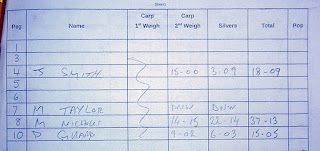 Peg Name Carp 1st Weigh Carp 2nd Weigh Silvers Total Pop
1
3
4 S SMITH 15-00 3-09 18-09
5
6
7 M TAYLOR DNW DNW
8 M NICHOLS 14-15 22-14 37-13
10 D GUARD 9-02 6-03 15-05